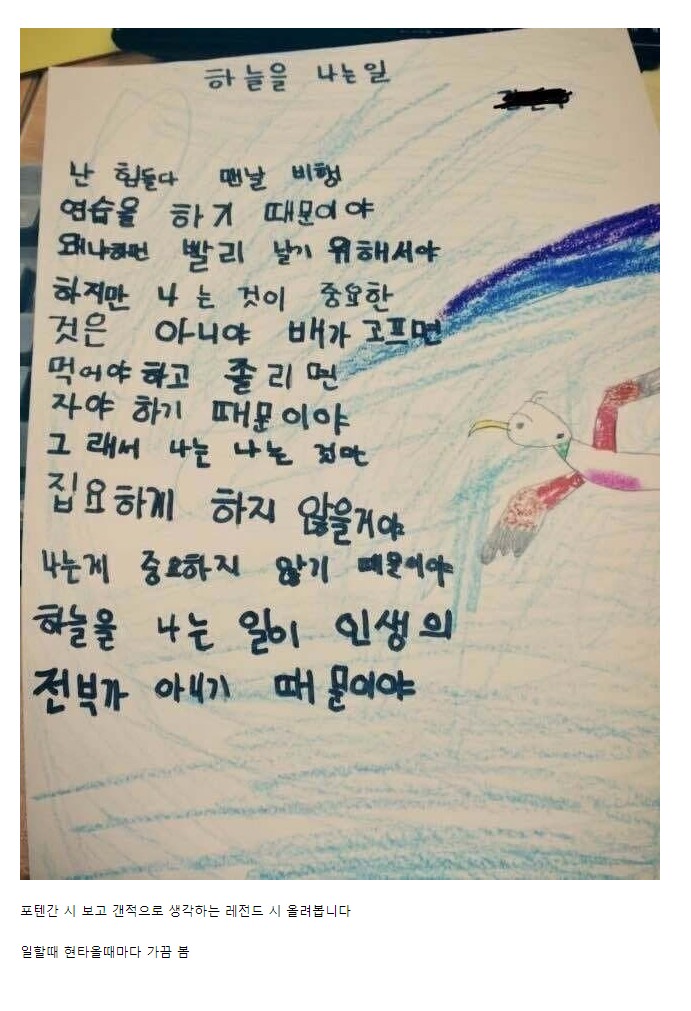 하늘을 나는일
난 힘들다 맨날 비행
연습을 하기 때문이야
왜냐하면 빨리 날기 위해서야
하지만 나는 것이 중요한
것은 아니야 배가 고프면
먹어야 하고 졸리면
자야 하기 때문이야
그래서 나는 나는 것만
집요하게 하지 않을거야
나는게 중요하지 않기 때문이야
하늘을 나는 일이 인생의
전부가 아니기 때문이야
포텐간 시 보고 갠적으로 생각하는 레전드 시 올려봅니다
일할때 현타올때마다 가끔 봄